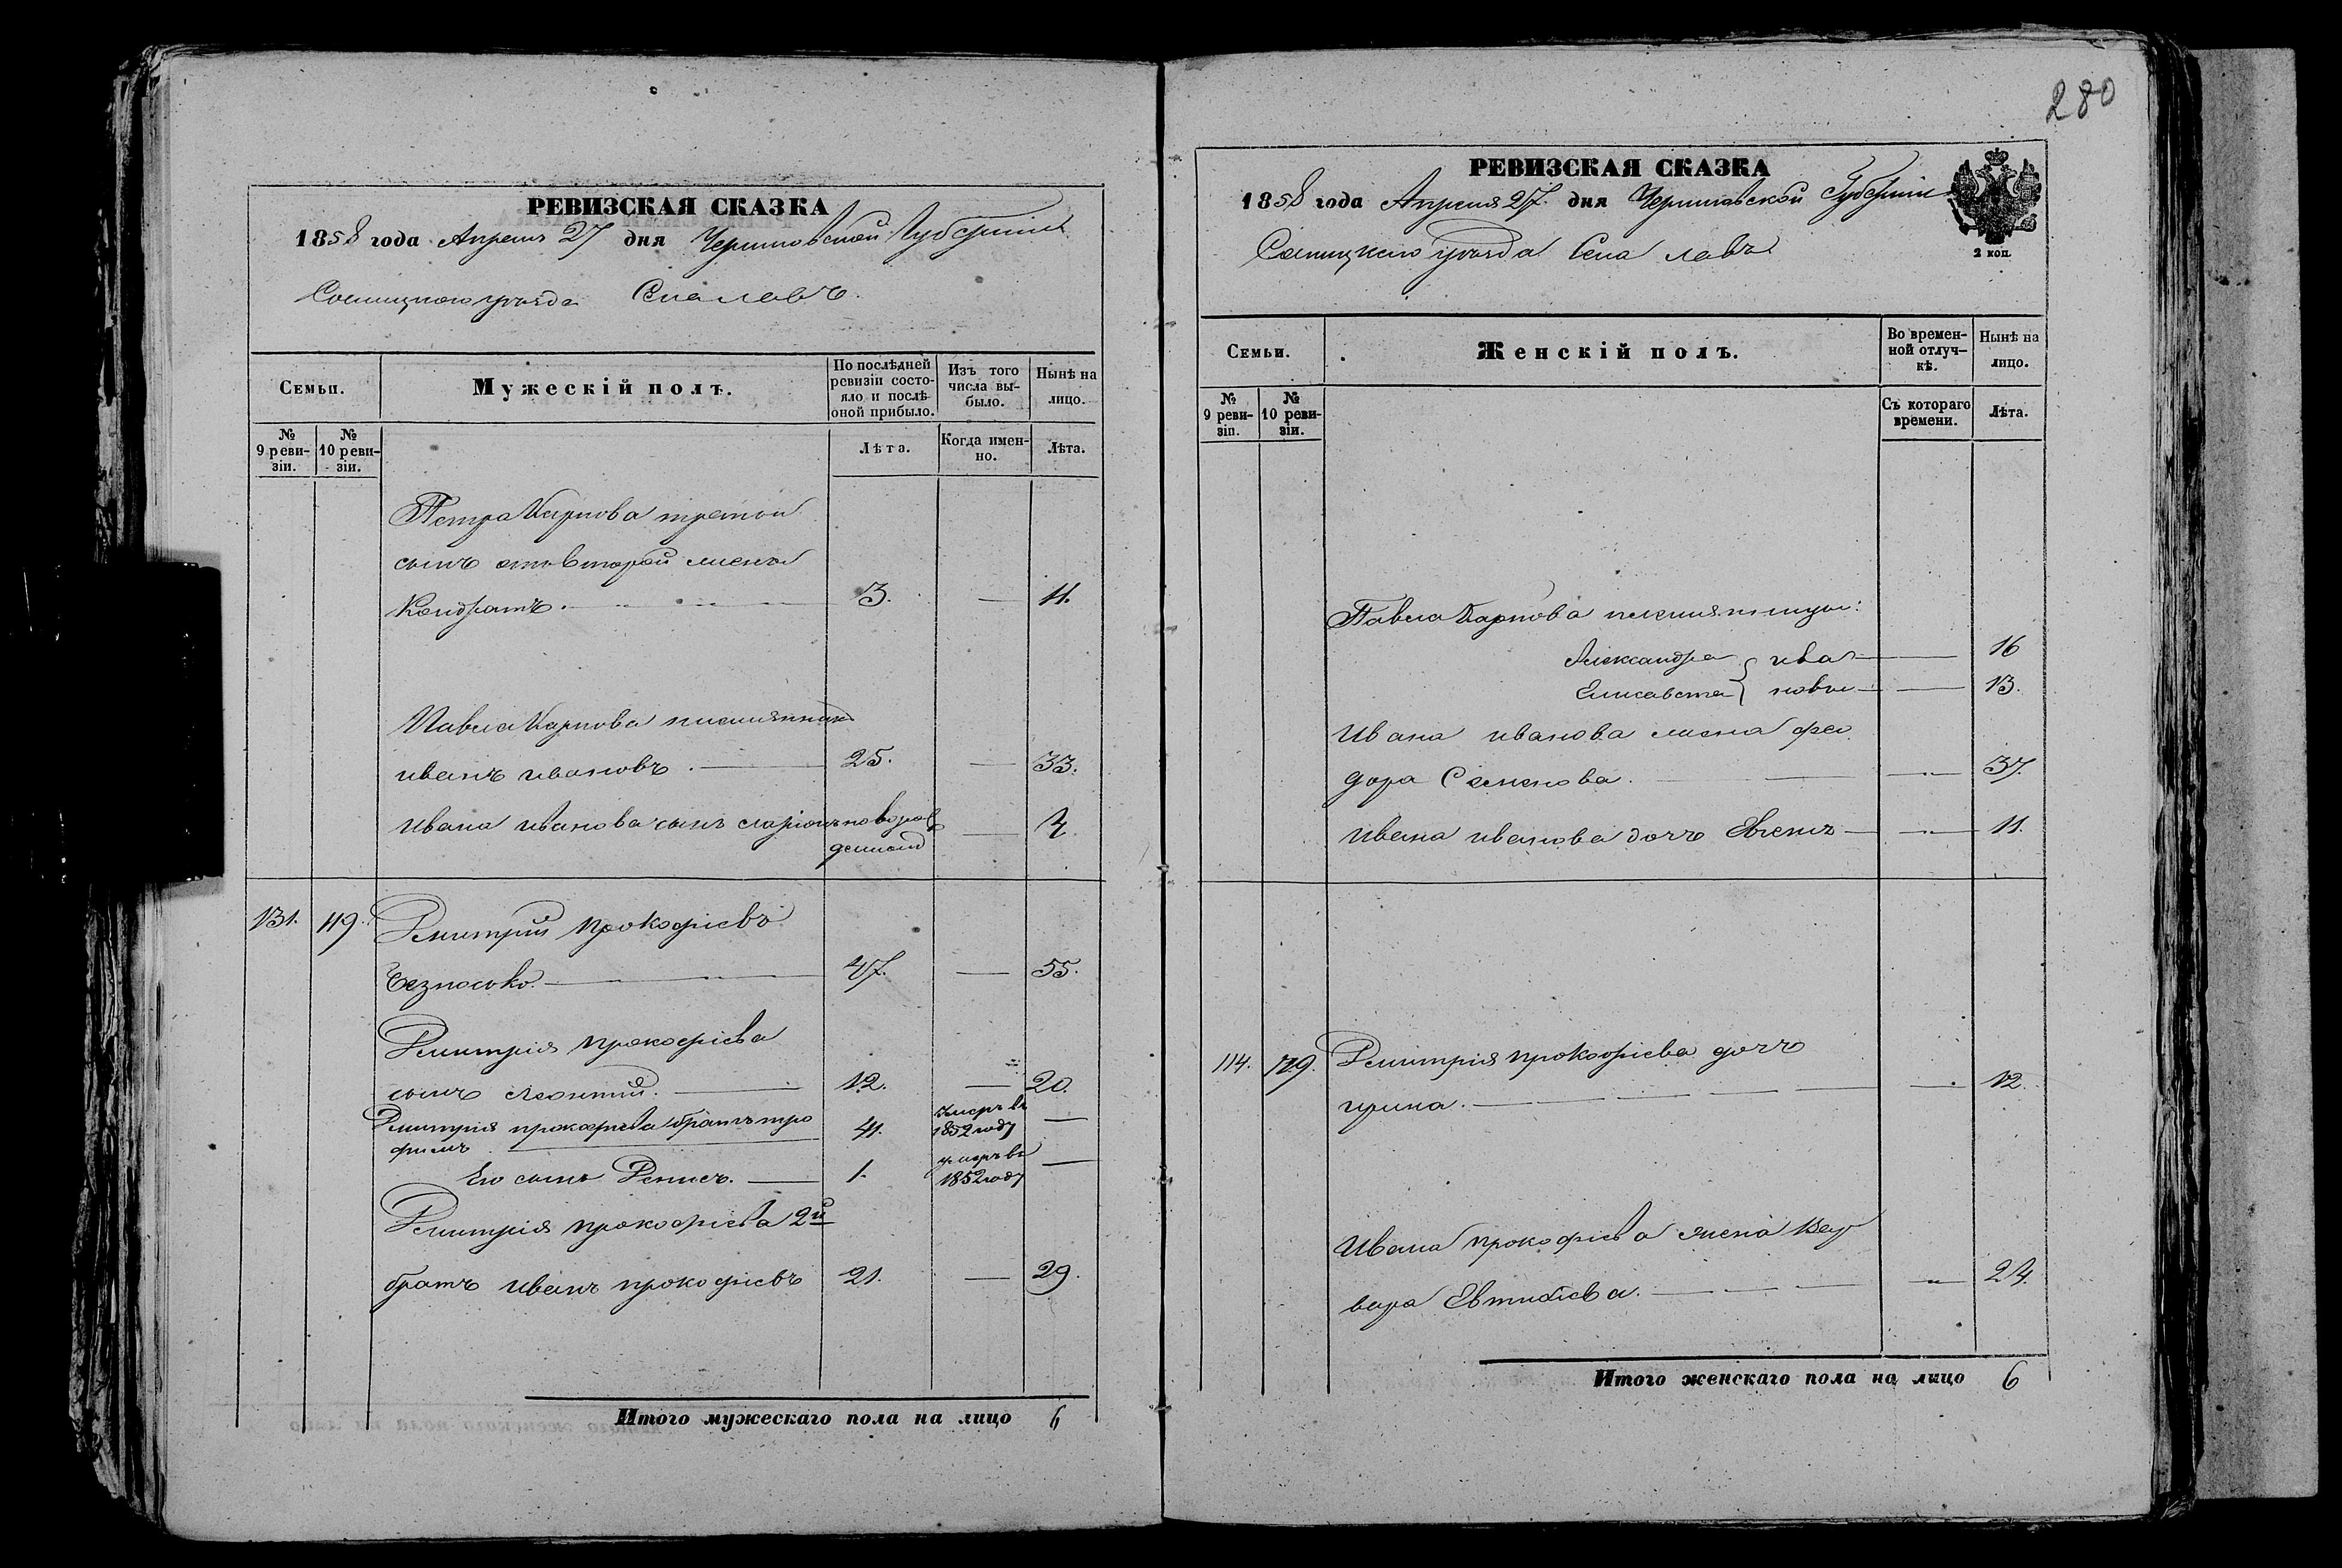 280
РЕВИЗСКАЯ СКАЗКА
1858 года Апреля 27 дня Черниговской Губернiи
Сосницкаго уѣзда Села Лавъ
Семьи.
Мужескiй полъ.
По послѣдней ревизiи состояло и послѣ оной прибыло.
Изъ того числа выбыло.
Нынѣ на лицо.
№ 9 ревизiи.
№ 10 ревизiи.
Лѣта.
Когда именно.
Лѣта.
Петра Карпова третой
сынъ отъ второй жены
Кондратъ. 3. — 11.
Павла Карпова племянникъ
иванъ ивановъ. 25. — 33.
ивана иванова сынъ новорож
денный —
131. 119. Дмитрий прокофiевъ
безносько. 47. — 55.
Дмитрiя прокофiева
сынъ Леонтий. 12. — 20.
Дмитрiя прокофiева братъ тро
фимъ 41. умеръ въ 1852 году —
Его сынъ Денисъ. 1. умеръ въ 1852 году —
Дмитрiя прокофiева 2й
братъ иванъ прокофiевъ 21. — 29.
Итого мужескаго пола на лицо 6
РЕВИЗСКАЯ СКАЗКА
1858 года Апреля 27. дня Черниговской Губернiи
Сосницкаго уѣзда Села Лавъ
2 коп.
Семьи.
Женскiй полъ.
Во временной отлучкѣ.
Нынѣ на лицо.
№ 9 ревизiи.
№ 10 ревизiи.
Съ котораго времени.
Лѣта.
Павла Карпова племянницы:
Александра ива — 16
Елисавета новы — 13.
Ивана иванова жена фео
дора Семенова. — 37.
ивана иванова дочь — 11.
Дмитрiя прокофiева дочь
ирина. — 12
Ивана прокофiева жена Вар
вара Евтихiева. — 24.
Итого женскаго пола на лицо 6